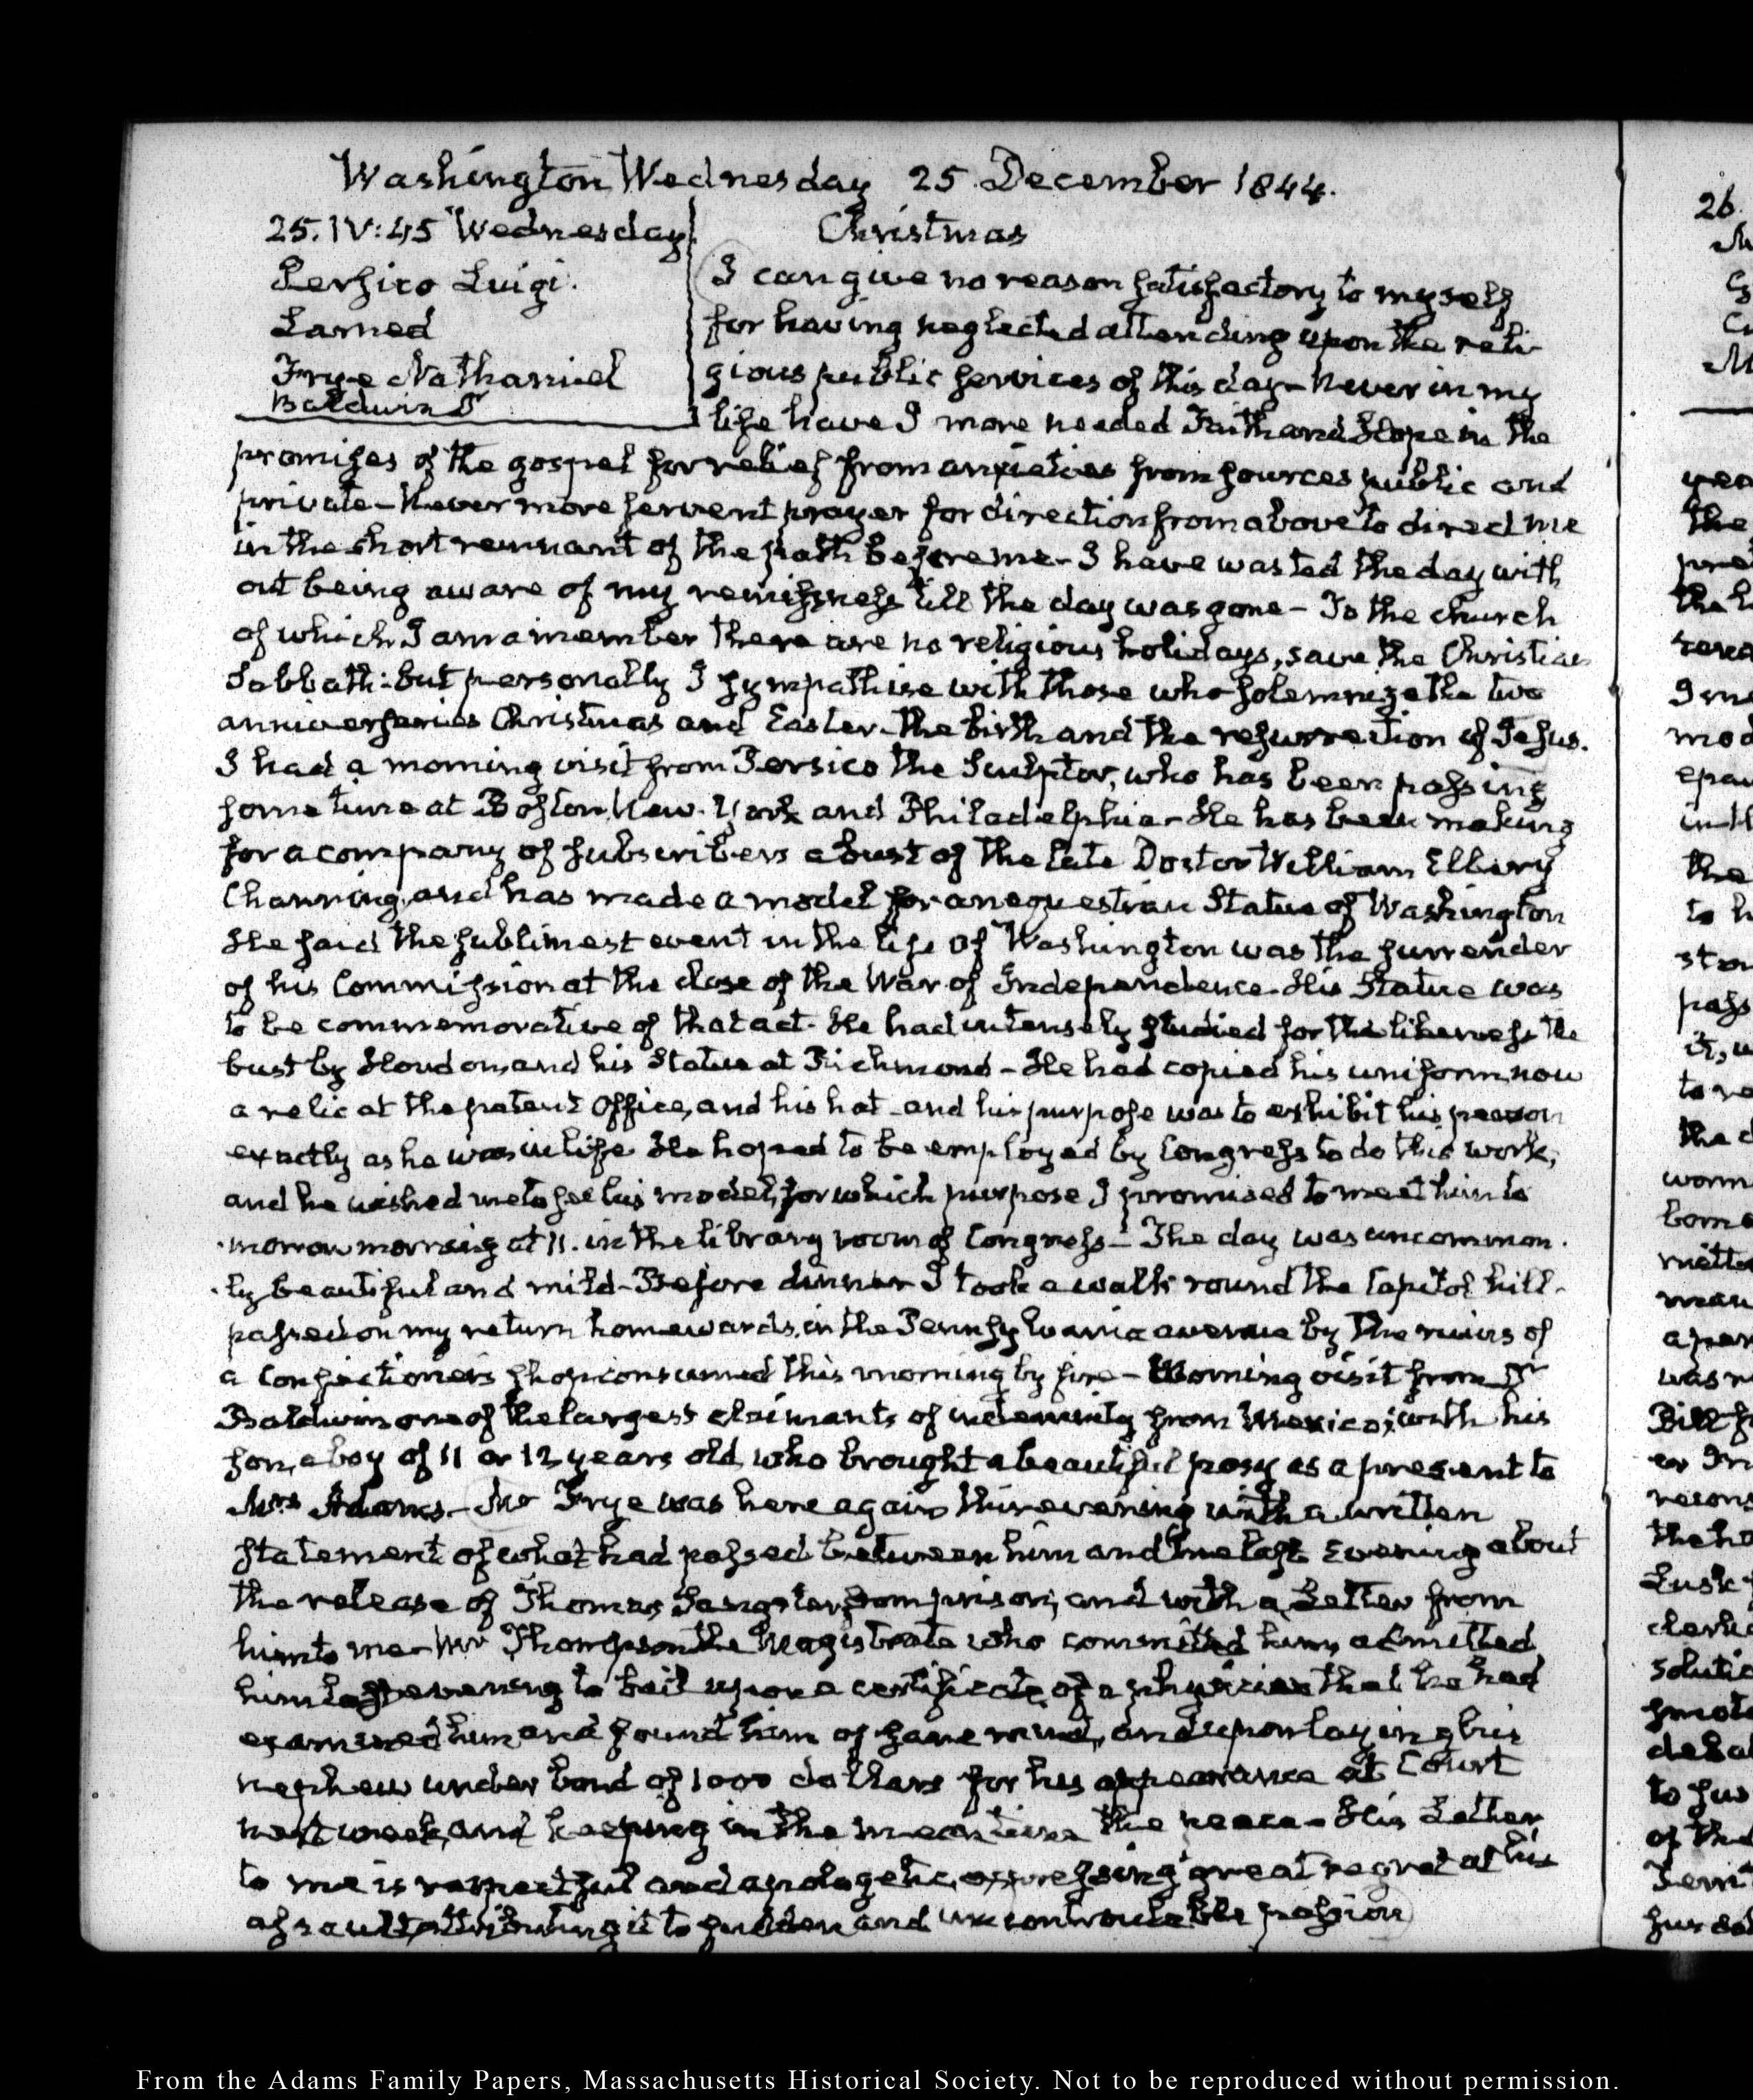 Washington Wednesday 25. December 1844.
25. IV:45 Wednesday
Persico Luigi.
Larned
Frye Nathaniel
Baldwin Dr
Christmas
I can give no reason satisfactory to myself
for having neglected attending upon the reli-
gious public services of this day – Never in my
life have I more needed Faith and Hope in the
promises of the gospel for relief from anxieties from sources public and
private – Never more fervent prayer for direction from above to direct me
in the short remnant of the path before me – I have wasted the day with
out being aware of my remissness till the day was gone – In the church
of which I am a member there are no religious holidays, save the Christian
Sabbath: but personally I sympathise with those who solemnize the two
anniversaries Christmas and Easter – the birth and the resurrection of Jesus.
I had a morning visit from Persico the Sculptor, who has been passing
some time at Boston, New-York and Philadelphia – He has been making
for a company of subscribers a bust of the late Doctor William Ellery
Channing, and has made a model for an equestrian Statue of Washington
He said the sublimest event in the life of Washington was the surrender
of his Commission at the close of the War of Independence – His Statue was
to be commemorative of that act – He had intensely studied for the likeness the
bust by Houdon, and his Statue at Richmond – He had copied his uniform, now
a relic at the patent Office, and his hat – and his purpose was to exhibit his person
exactly as he was in life. He hoped to be employed by Congress to do this work,
and he wished me to see his model, for which purpose I promised to meet him to
morrow morning at 11. in the library room of Congress – The day was uncommon-
ly beautiful and mild – Before dinner I took a walk round the Capitol hill –
passed on my return homewards, in the Pennsylvania avenue by the ruins of
a Confectioner's shop consumed this morning by fire – Morning visit from Dr
Baldwin one of the largest claimants of indemnity from Mexico; with his
son, a boy of 11 or 12 years old, who brought a beautiful posy as a present to
Mrs Adams – Mr Frye was here again this evening with a written
statement of what had passed between him and me last Evening about
the release of Thomas Sangster from prison, and with a Letter from
him to me – Mr Thompson the Magistrate who committed him, admitted
him last evening to bail upon a certificate of a physician that he had
examined him and found him of sane mind, and upon laying his
nephew under bond of 1000 dollars for his appearance at Court
next week, and keeping in the meantime the peace – His Letter
to me is respectful and apologetic, expressing great regret at his
assault, attributing it to sudden and uncontroulable passion
26.
From the Adams Family Papers, Massachusetts Historical Society. Not to be reproduced without permission.